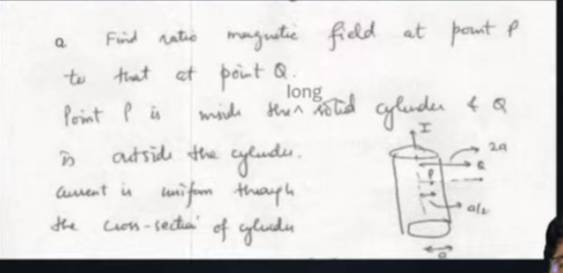 Q Find ratio magnetic field at point P
to that at point Q.
long
Point P is inside the ^ solid cylinder & Q
is outside the cylinder.
Current is uniform through
the cross-section of cylinder
I
2a
Q
P
a/2
a